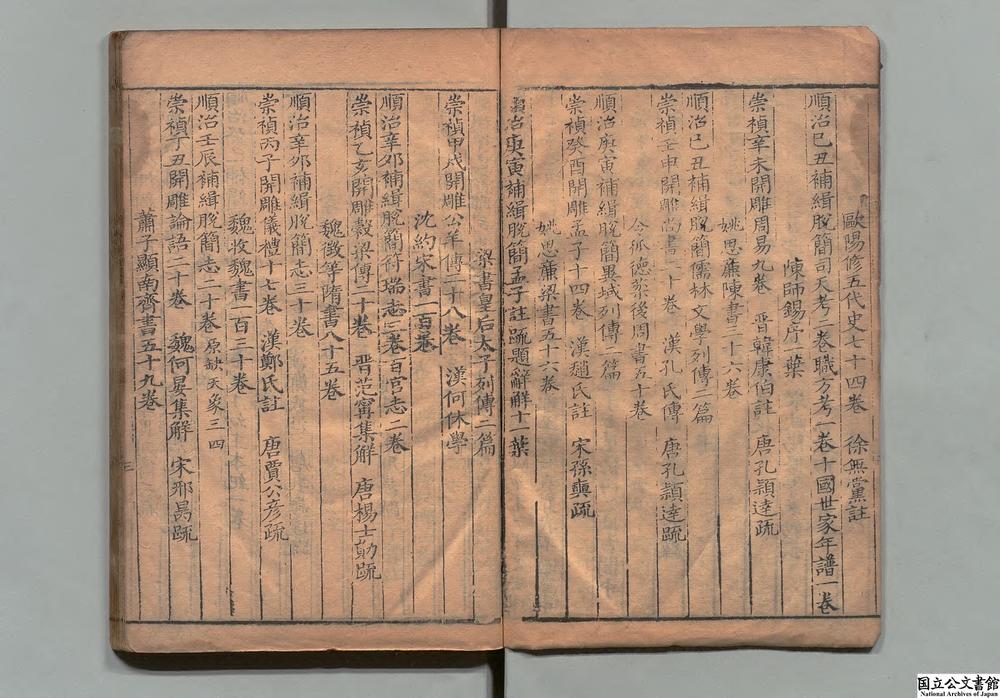 歐陽修五代史七十四卷　徐無黨註
順治己丑補緝脫簡司天考二卷職方考一卷十國世家年譜一卷
陳師錫序一葉
崇禎辛未開雕周易九卷　晉韓康伯註　唐孔穎達疏
姚思廉陳書三十六卷
順治己丑補緝脫簡儒林文學列傳二篇
崇禎壬申開雕尚書二十卷　漢孔氏傳　唐孔穎達疏
令狐德棻後周書五十卷
順治庚寅補緝脫簡異域列傳一篇
崇禎癸酉開雕孟子十四卷　漢趙氏註　宋孫奭疏
姚思廉梁書五十六卷
順治庚寅補緝脫簡孟子註疏題辭解十一葉
梁書皇后太子列傳二篇
崇禎甲戌開雕公羊傳二十八卷　漢何休學
沈約宋書一百卷
順治辛卯補緝脫簡符瑞志三卷百官志二卷
崇禎乙亥開雕穀梁傳二十卷　晉范甯集解　唐楊士勛疏
魏徵等隋書八十五卷
順治辛卯補緝脫簡志三十卷
崇禎丙子開雕儀禮十七卷　漢鄭氏註　唐賈公彥疏
魏收魏書一百三十卷
順治壬辰補緝脫簡志二十卷原缺天象三四
崇禎丁丑開雕論語二十卷　魏何晏集解　宋邢昺疏
蕭子顯南齊書五十九卷
国立公文書館
National Archives of Japan